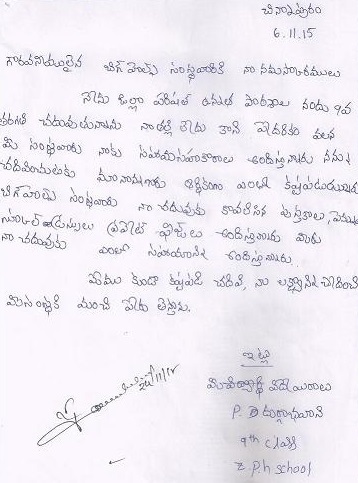 చినాపురం
6.11.15
గౌరవనీయులైన బిగ్ హెల్ప్ సంస్థవారికి నా నమస్కారములు
నేను జిల్లా పరిషత్ ఉన్నత పాఠశాల నందు 9వ
తరగతి చదువుతున్నాను నా తల్లి లేదు కాని పేదరికం వలన
మీ సంస్థవారు నాకు సహాయసహకారాలు అందిస్తున్నారు నన్ను
చదివించుటకు మా నాన్నగారు ఆర్థికంగా ఎంతో కష్టపడుచున్నారు
బిగ్ హెల్ప్ సంస్థవారు నా చదువుకు కావలసిన పుస్తకాలు, పెన్నులు
స్కూల్ ఫీజులు అందిస్తున్నారు మీరు
నా చదువుకు ఎంతో సహాయాన్ని అందిస్తున్నారు.
నేను కూడా కష్టపడి చదివి, నా లక్ష్యాన్ని చేరించి
మీ సంస్థకి మంచి పేరు తెస్తాను.
24/11/15
ఇట్లు
మీ విద్యార్థి విధేయురాలు
P. దుర్గాభవాని
9th class
Z.P.h school